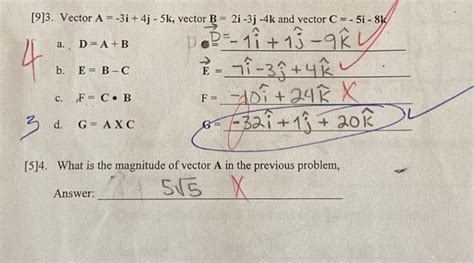 [9]3. Vector A = -3i + 4j - 5k, vector B = 2i -3j -4k and vector C = - 5i - 8k
4
a. D = A + B D= -1î + 1ĵ - 9k̂ ✓
b. E = B – C E = 7î -3ĵ + 4k̂ ✓
c. F = C • B F = -10î + 24k̂ X
3 d. G = A X C G = -32î + 1ĵ + 20k̂ ✓
[5]4. What is the magnitude of vector A in the previous problem,
Answer: 5√5 X